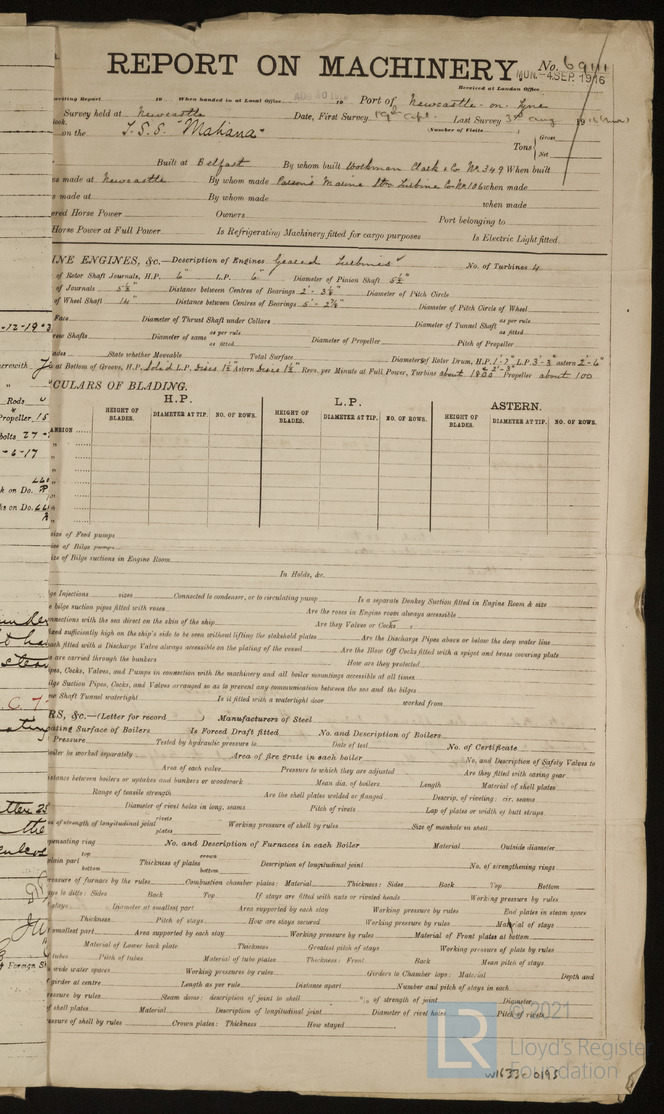 REPORT ON MACHINERY.
No. 69111
Received at London Office
MON. -4 SEP. 1916
writing Report 19 When handed in at Local Office 19 Port of Newcastle-on-Tyne
Survey held at Newcastle Date, First Survey Last Survey 3rd Aug 19
on the T.S.S. "Mahana" (Number of Visits
Tons { Gross
Net
Built at Belfast By whom built Workman Clark & Co. No. 349 When built
s made at Newcastle By whom made Parsons Marine Stm Turbine Co. No. 106 when made
s made at By whom made when made
ered Horse Power Owners Port belonging to
Horse Power at Full Power Is Refrigerating Machinery fitted for cargo purposes Is Electric Light fitted
INE ENGINES, &c.—Description of Engines Geared Turbines No. of Turbines 4
of Rotor Shaft Journals, H.P. 6" L.P. 6" Diameter of Pinion Shaft 5½"
of Journals Distance between Centres of Bearings Diameter of Pitch Circle
of Wheel Shaft Distance between Centres of Bearings Diameter of Pitch Circle of Wheel
Face Diameter of Thrust Shaft under Collars Diameter of Tunnel Shaft as per rule as fitted
rew Shafts Diameter of same as per rule as fitted Diameter of Propeller Pitch of Propeller
ades State whether Moveable Total Surface Diameter of Rotor Drum, H.P. 1'-7" L.P. 3'-3" astern 2'-6"
at Bottom of Groove, H.P. Solid L.P. Discs Astern Discs Revs. per Minute at Full Power, Turbine about 1800 Propeller about 100
CULARS OF BLADING.
H.P. L.P. ASTERN.
HEIGHT OF BLADES. DIAMETER AT TIP. NO. OF ROWS. HEIGHT OF BLADES. DIAMETER AT TIP. NO. OF ROWS. HEIGHT OF BLADES. DIAMETER AT TIP. NO. OF ROWS.
ANSION
size of Feed pumps
ize of Bilge pumps
ize of Bilge suctions in Engine Room
In Holds, &c.
ge Injections sizes Connected to condenser, or to circulating pump Is a separate Donkey Suction fitted in Engine Room & size
e bilge suction pipes fitted with roses Are the roses in Engine room always accessible
nnections with the sea direct on the skin of the ship Are they Valves or Cocks
xed sufficiently high on the ship's side to be seen without lifting the stokehold plates Are the Discharge Pipes above or below the deep water line
ach fitted with a Discharge Valve always accessible on the plating of the vessel Are the Blow Off Cocks fitted with a spigot and brass covering plate
s are carried through the bunkers How are they protected
ipes, Cocks, Valves, and Pumps in connection with the machinery and all boiler mountings accessible at all times
ilge Suction Pipes, Cocks, and Valves arranged so as to prevent any communication between the sea and the bilges
ew Shaft Tunnel watertight Is it fitted with a watertight door worked from
RS, &c.—(Letter for record ) Manufacturers of Steel
eating Surface of Boilers Is Forced Draft fitted No. and Description of Boilers
Pressure Tested by hydraulic pressure to Date of test No. of Certificate
boiler be worked separately Area of fire grate in each boiler No. and Description of Safety Valves to
Area of each valve Pressure to which they are adjusted Are they fitted with easing gear
istance between boilers or uptakes and bunkers or woodwork Mean dia. of boilers Length Material of shell plates
Range of tensile strength Are the shell plates welded or flanged Descrip. of riveting: cir. seams
Diameter of rivet holes in long. seams Pitch of rivets Lap of plates or width of butt straps
es of strength of longitudinal joint rivets plates Working pressure of shell by rules Size of manhole in shell
pensating ring No. and Description of Furnaces in each Boiler Material Outside diameter
plain part top bottom Thickness of plates crown bottom Description of longitudinal joint No. of strengthening rings
ressure of furnace by the rules Combustion chamber plates: Material Thickness: Sides Back Top Bottom
ays to ditto: Sides Back Top If stays are fitted with nuts or riveted heads Working pressure by rules
stays Diameter at smallest part Area supported by each stay Working pressure by rules End plates in steam space
Thickness Pitch of stays How are stays secured Working pressure by rules Material of stays
smallest part Area supported by each stay Working pressure by rules Material of Front plates at bottom
Material of Lower back plate Thickness Greatest pitch of stays Working pressure of plate by rules
tubes Pitch of tubes Material of tube plates Thickness: Front Back Mean pitch of stays
wide water spaces Working pressures by rules Girders to Chamber tops: Material Depth and
girder at centre Length as per rule Distance apart Number and pitch of stays in each
ressure by rules Steam dome: description of joint to shell % of strength of joint Diameter
f shell plates Material Description of longitudinal joint Diameter of rivet holes Pitch of rivets
essure of shell by rules Crown plates: Thickness How stayed
© 2021
LR
Lloyd's Register
Foundation
W1633-0195